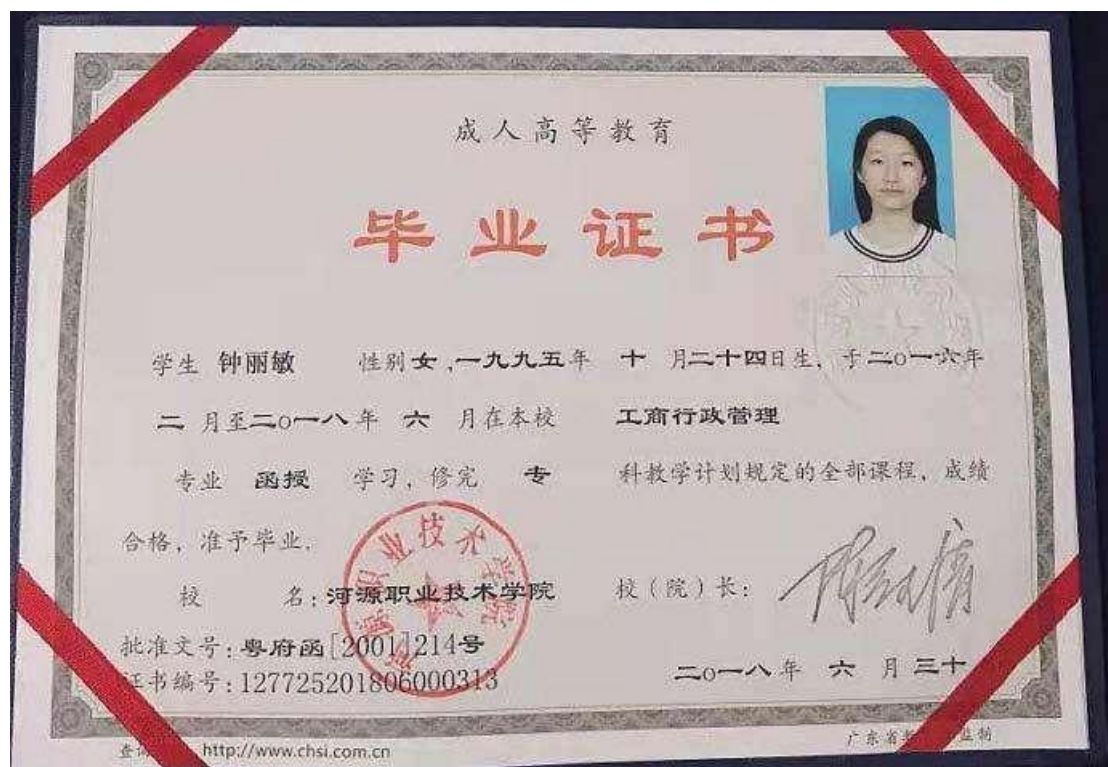 成人高等教育
毕业证书
学生 钟丽敏 性别 女 ,一九九五年 十 月二十四日生, 于二○一六年
二 月至二○一八年 六 月在本校 工商行政管理
专业 函授 学习, 修完 专 科教学计划规定的全部课程, 成绩
合格, 准予毕业.
校 名: 河源职业技术学院 校（院）长:
批准文号: 粤府函[2001]214号
证书编号: 127725201806000313
二○一八年 六 月三十
河源职业技术学院
http://www.chsi.com.cn
广东省 监制